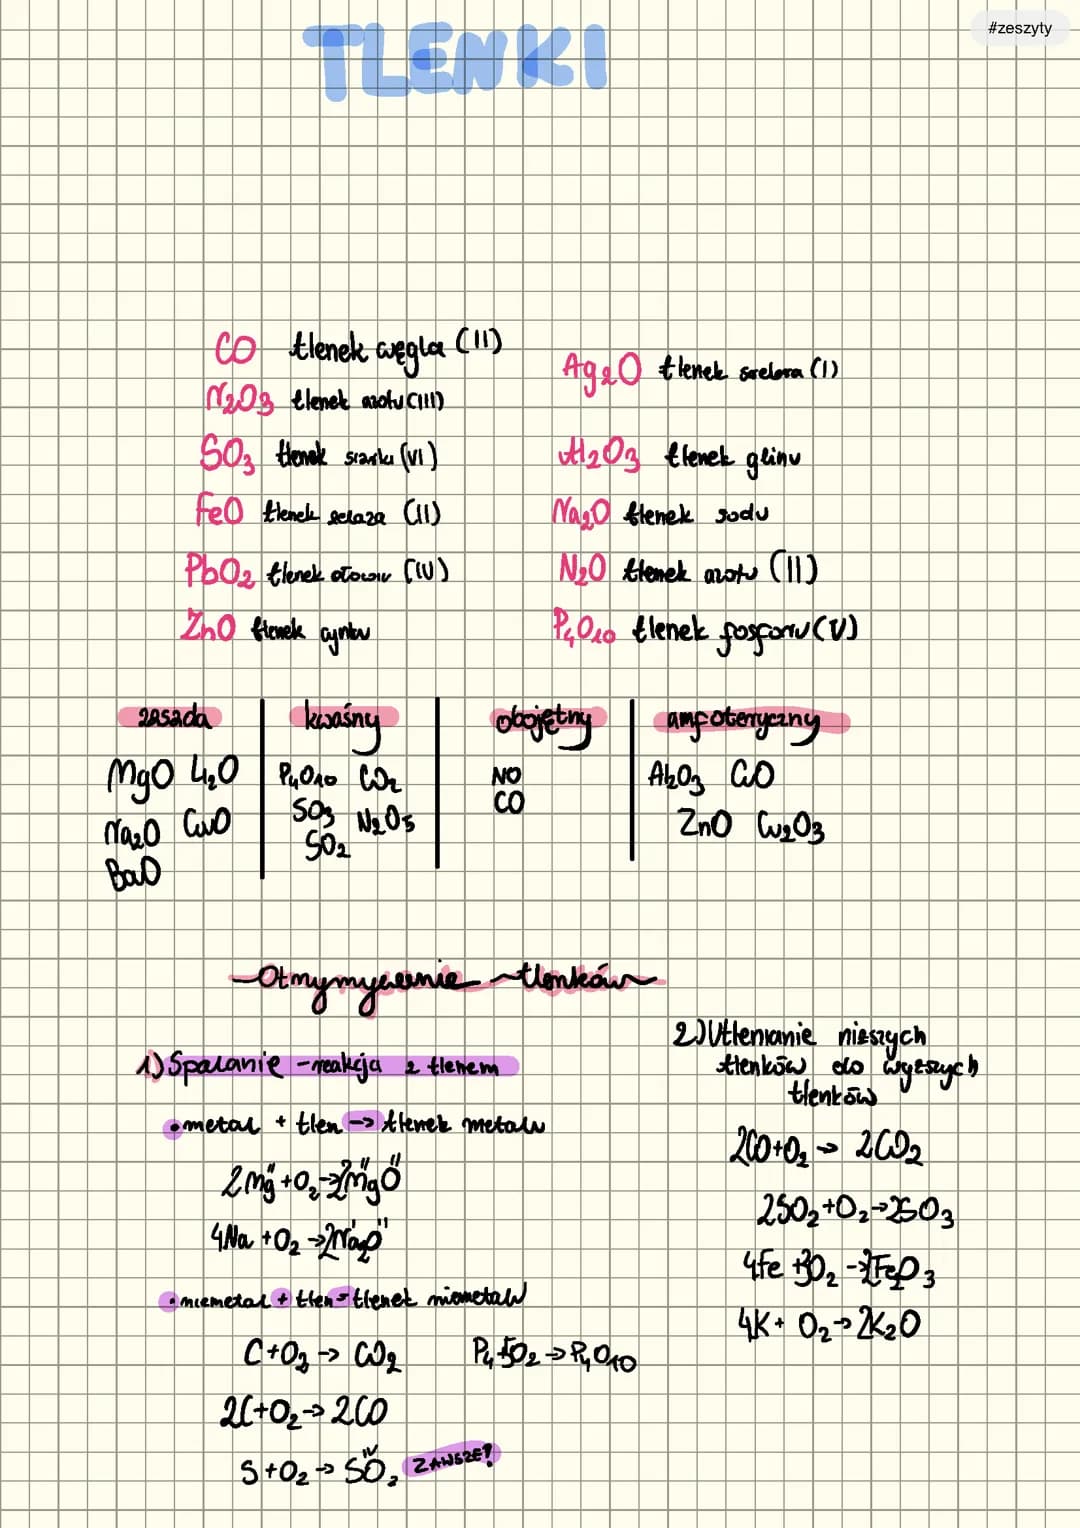 #zeszyty
TLENKI
CO tlenek węgla (II)
N2O3 tlenek azotu (III)
SO3 tlenek siarki (VI)
FeO tlenek żelaza (II)
PbO2 tlenek ołowiu (IV)
ZnO tlenek cynku
Ag2O tlenek srebra (I)
Al2O3 tlenek glinu
Na2O tlenek sodu
N2O tlenek azotu (II)
P4O10 tlenek fosforu (V)
zasada kwaśny obojętny amfoteryczny
MgO Li2O P4O10 CO2 NO Al2O3
Na2O CuO SO3 N2O5 CO ZnO
BaO SO2
Otrzymywanie tlenków
1) Spalanie - reakcja z tlenem
• metal + tlen -> tlenek metalu
2Mg + O2 -> 2MgO
4Na + O2 -> 2Na2O
• niemetal + tlen = tlenek niemetalu
C + O2 -> CO2 P4 + 5O2 -> P4O10
2C + O2 -> 2CO
S + O2 -> SO2 ZAWSZE!
2) Utlenianie niższych
tlenków do wyższych
tlenków
2CO + O2 -> 2CO2
2SO2 + O2 -> 2SO3
4Fe + 3O2 -> 2Fe2O3
4K + O2 -> 2K2O